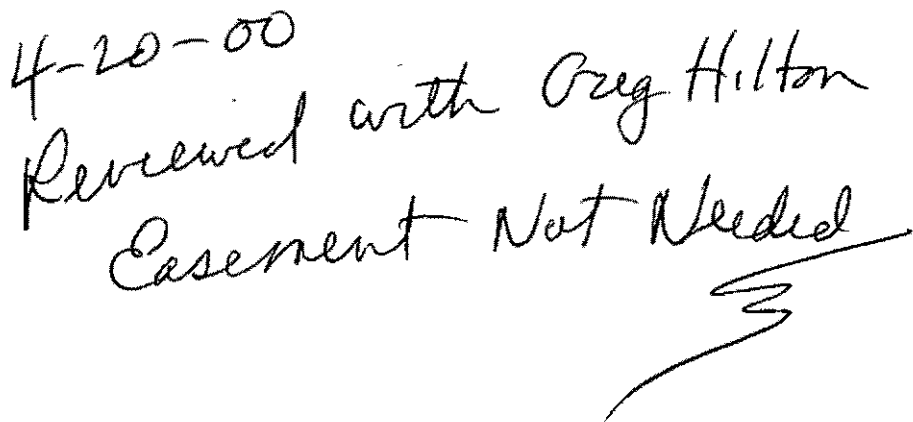 4-20-00
Reviewed with Greg Hilton
Easement Not Needed